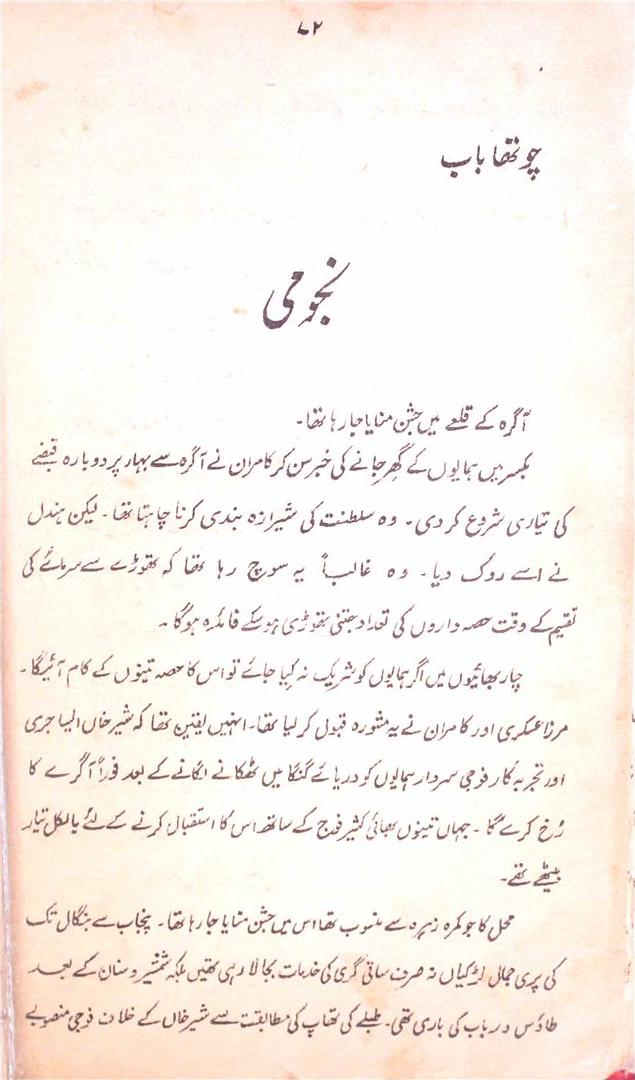 ۷۲
چوتھا باب
نجومی
آگرہ کے قلعے میں جشن منایا جا رہا تھا۔
بکسر میں ہمایوں کے گھر جانے کی خبر سن کر کامران نے آگرہ سے بہار پر دوبارہ قبضے
کی تیاری شروع کر دی۔ وہ سلطنت کی شیرازہ بندی کرنا چاہتا تھا۔ لیکن ہندل
نے اسے روک دیا۔ وہ غالباً یہ سوچ رہا تھا کہ تھوڑے سے سرمائے کی
تقسیم کے وقت حصہ داروں کی تعداد جتنی تھوڑی ہو سکے فائدہ ہوگا۔
چار بھائیوں میں اگر ہمایوں کو شریک نہ کیا جائے تو اس کا حصہ تینوں کے کام آئیگا۔
مرزا عسکری اور کامران نے یہ مشورہ قبول کر لیا تھا۔ انہیں یقین تھا کہ شیر خاں ایسا جری
اور تجربہ کار فوجی سردار ہمایوں کو دریائے گنگا میں ٹھکانے لگانے کے بعد فوراً آگرے کا
رُخ کرے گا۔ جہاں تینوں بھائی کثیر فوج کے ساتھ اس کا استقبال کرنے کے لئے بالکل تیار
بیٹھے تھے۔
محل کا جو کمرہ زہرہ سے منسوب تھا اس میں جشن منایا جا رہا تھا۔ پنجاب سے بنگال تک
کی پری جمال لڑکیاں نہ صرف ساقی گری کی خدمات بجا لا رہی تھیں بلکہ شمشیر و سنان کے بعد
طاؤس و رباب کی باری تھی۔ طبلے کی تھاپ کی مطابقت سے شیر خاں کے خلاف فوجی منصوبے